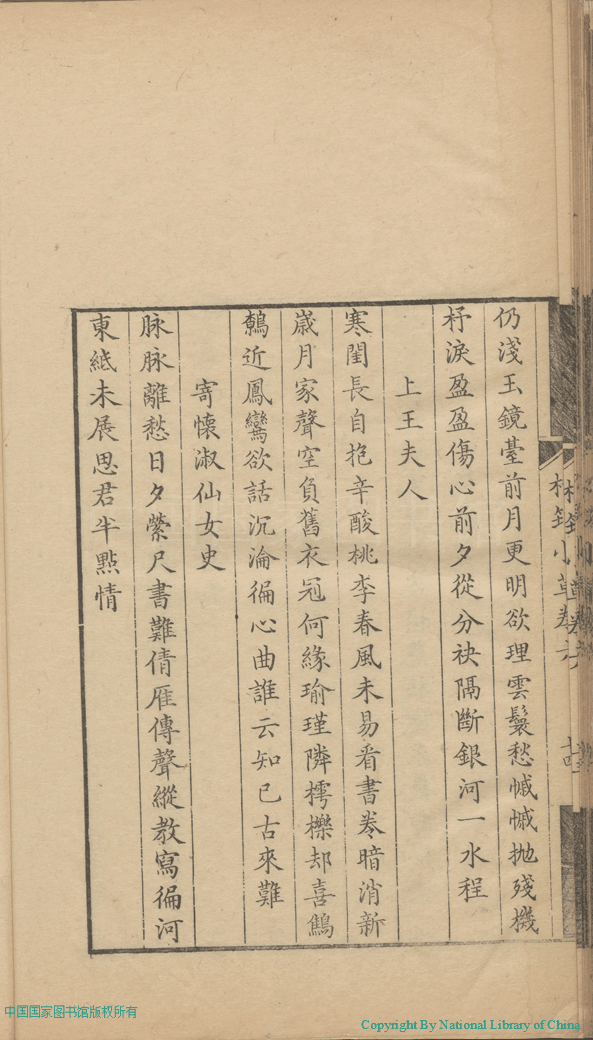 仍淺玉鏡臺前月更明欲理雲鬟愁慽慽拋殘機
杼淚盈盈傷心前夕從分袂隔斷銀河一水程
上王夫人
寒閨長自抱辛酸桃李春風未易看書卷暗消新
歲月家聲空負舊衣冠何緣瑜瑾隣樗櫟却喜鷦
鷯近鳳鸞欲話沉淪徧心曲誰云知己古來難
寄懷淑仙女史
脉脉離愁日夕縈尺書難倩雁傳聲縱教寫徧河
東紙未展思君半點情
小草卷六
十四
中国国家图书馆版权所有
Copyright By National Library of China